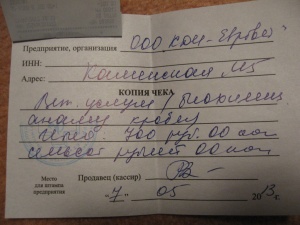 Предприятие, организация ООО
ИНН:
Адрес: Каменская
КОПИЯ ЧЕКА
Вет. услуги / биохимич
анализ крови
Итого: 700 руб. 00 коп
семьсот рублей 00 коп
Место для штампа предприятия
Продавец (кассир)
"7" 05 2013 г.